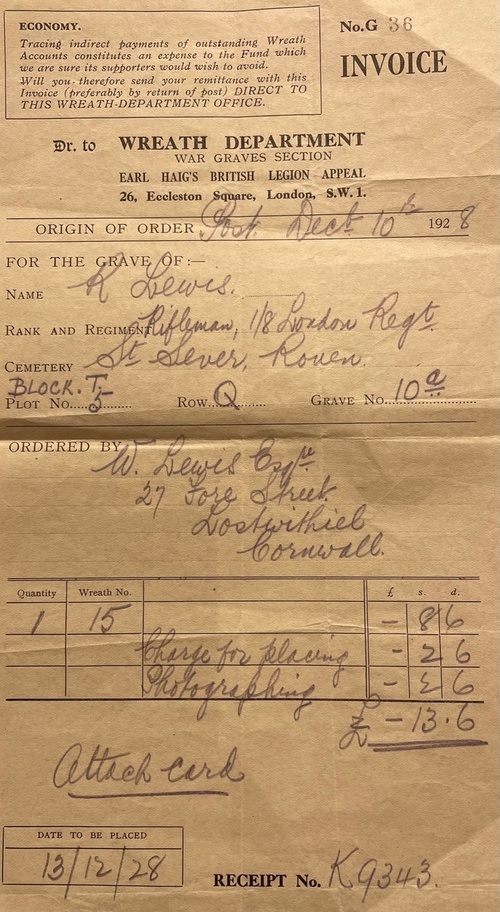 ECONOMY.
No.G 36
Tracing indirect payments of outstanding Wreath
Accounts constitutes an expense to the Fund which
we are sure its supporters would wish to avoid.
Will you therefore send your remittance with this
Invoice (preferably by return of post) DIRECT TO
THIS WREATH-DEPARTMENT OFFICE.
INVOICE
Dr. to WREATH DEPARTMENT
WAR GRAVES SECTION
EARL HAIG'S BRITISH LEGION APPEAL
26, Eccleston Square, London, S.W.1.
ORIGIN OF ORDER Post. Decr 10th 1928
FOR THE GRAVE OF:—
NAME K Lewis.
RANK AND REGIMENT Rifleman, 1/8 London Regt.
CEMETERY St Sever, Rouen.
BLOCK. T.
PLOT No. 5 ROW Q GRAVE No. 10a
ORDERED BY W. Lewis Esqre
27 Fore Street
Lostwithiel
Cornwall.
Quantity Wreath No. £ s. d.
1 15 - 8 6
Charge for placing - 2 6
Photographing - 2 6
£ - 13.6
Attach card
DATE TO BE PLACED
13/12/28
RECEIPT No. K9343.